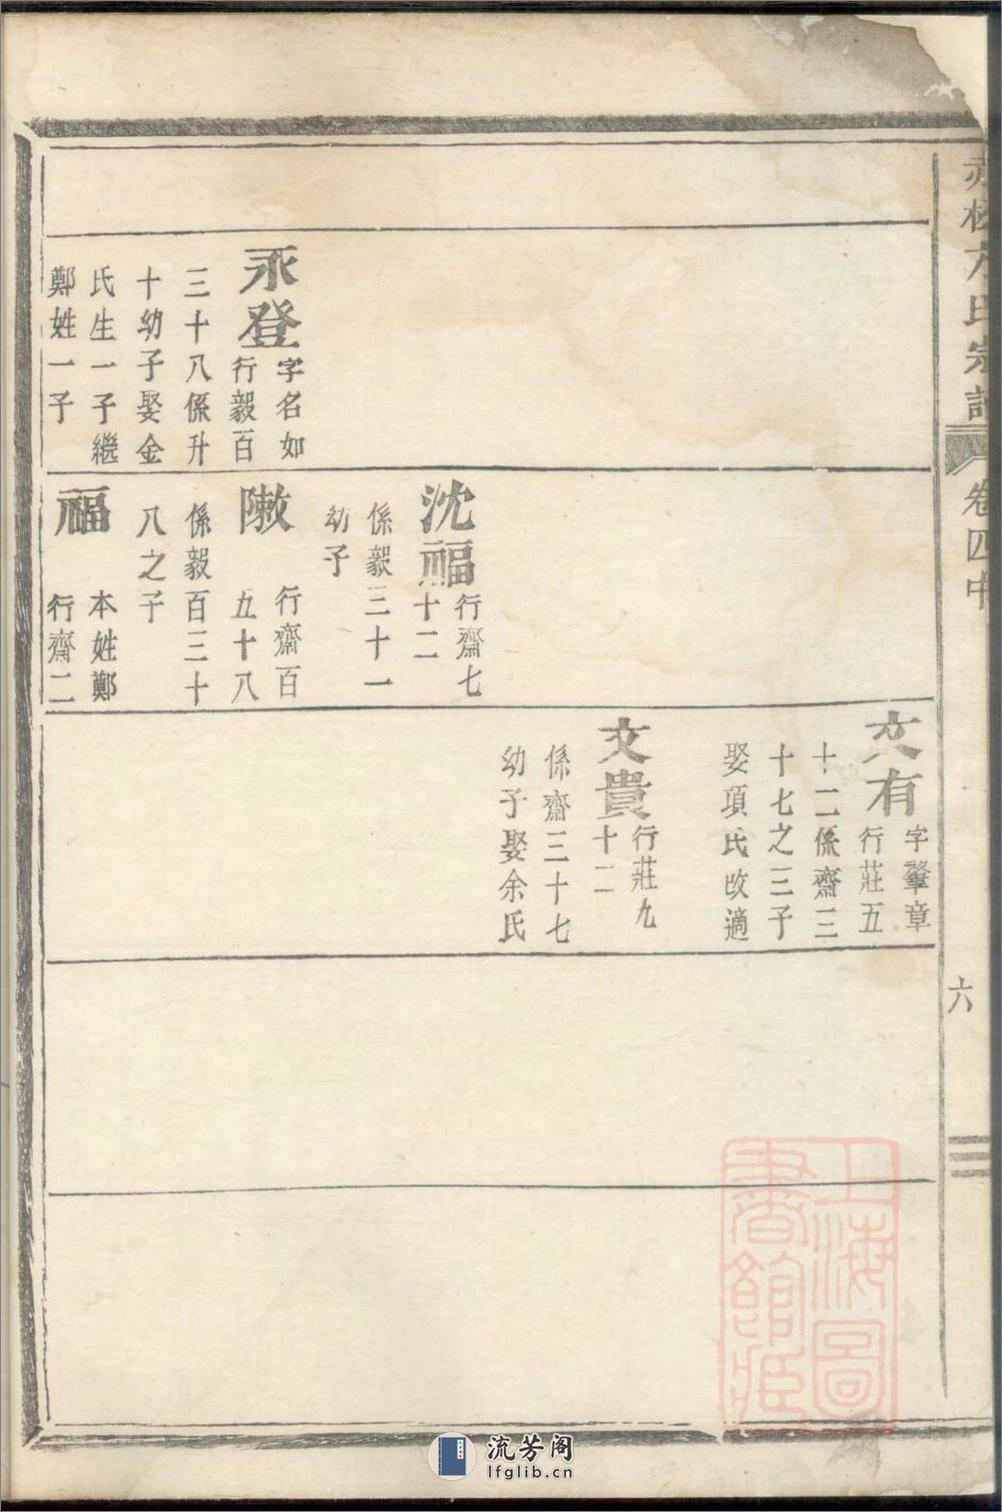 方氏宗譜
卷四中
六
永登
字名如
行毅百
三十八係升
十幼子娶金
氏生一子繼
鄭姓一子
沈福
行齋七
十二
係毅三十一
幼子
行齋百
五十八
係毅百三十
八之子
福
本姓鄭
行齋二
文有
字肇章
行莊五
十二係齋三
十七之三子
娶項氏改適
文貴
行莊九
十二
係齋三十七
幼子娶余氏
上海圖
書館藏
流芳阁
lfglib.cn